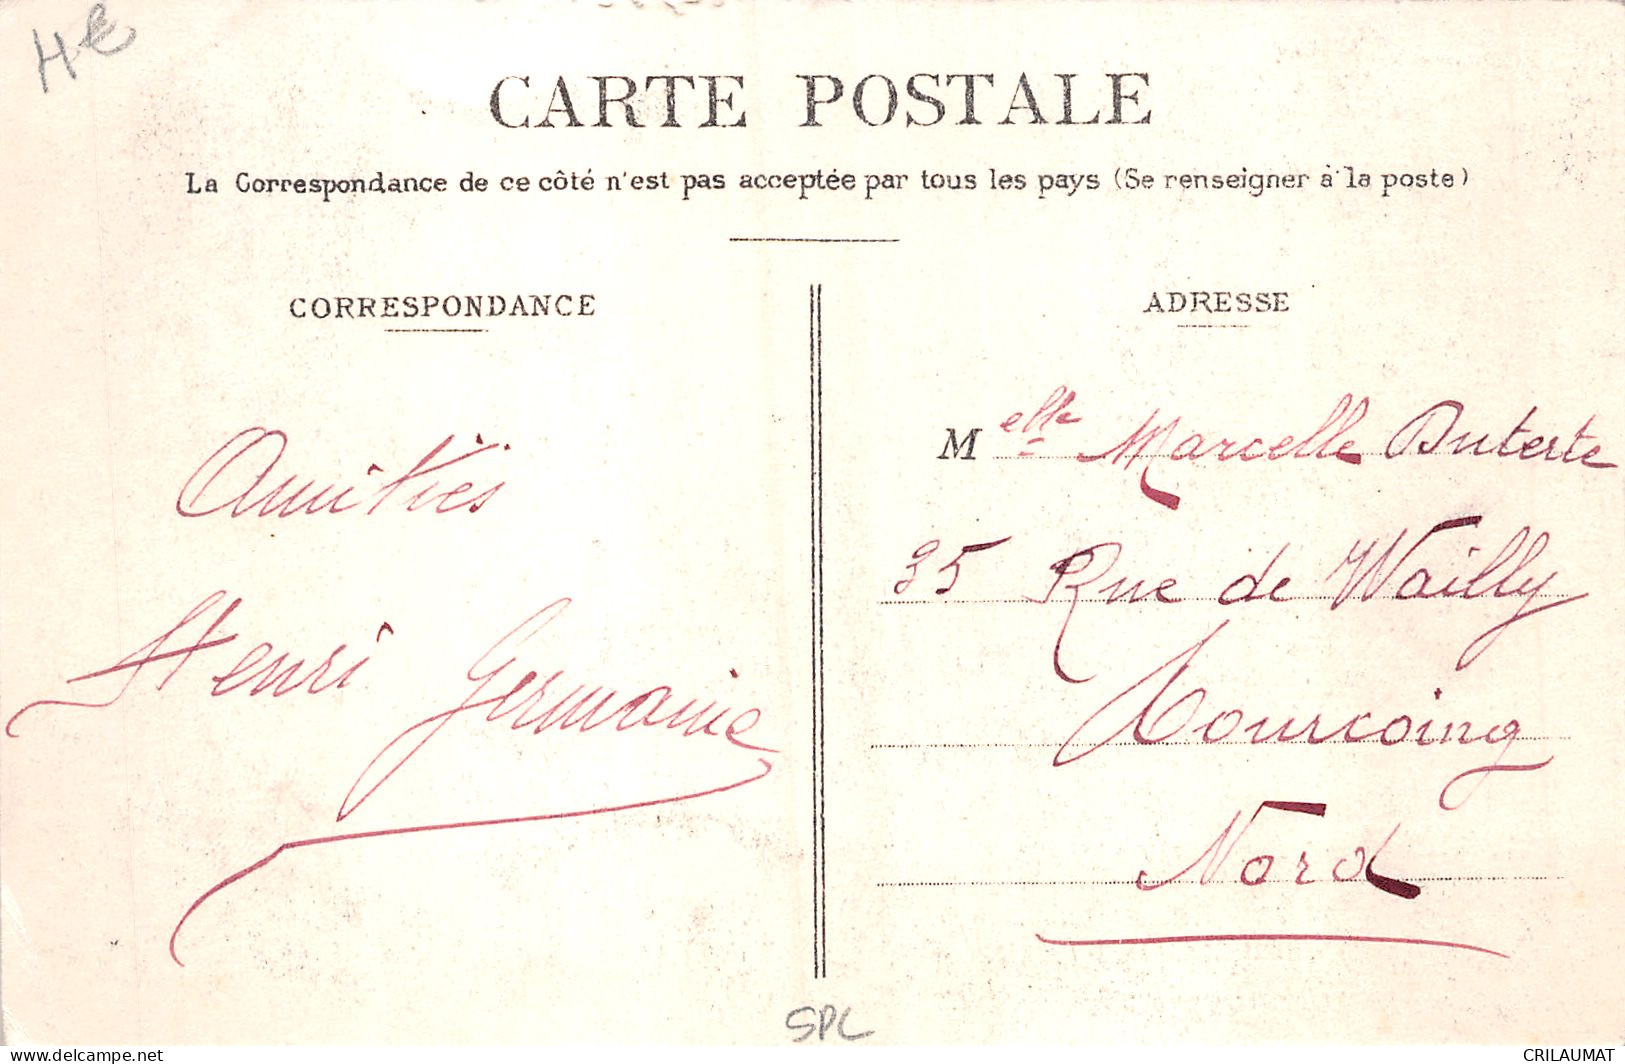 4€
CARTE POSTALE
La Correspondance de ce côté n'est pas acceptée par tous les pays (Se renseigner à la poste)
CORRESPONDANCE
Amitiés
Henri Germaine
ADRESSE
Melle Marcelle Duterte
35 Rue de Wailly
Tourcoing
Nord
SPL
www.delcampe.net
CRILAUMAT